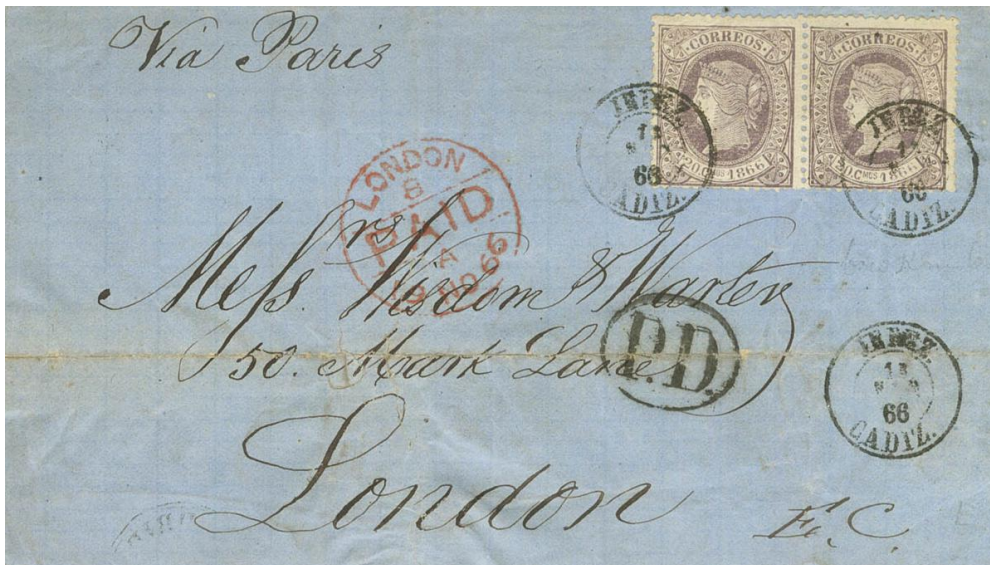 Via Paris
CORREOS CORREOS
20 Cmos 1866 Cmos
JEREZ
66
CADIZ.
JEREZ
66
CADIZ.
LONDON
PAID
A
66
Messrs. Wiscom & Warter
50. Mark Lane
P.D.
JEREZ
13
66
CADIZ.
London
E.C.